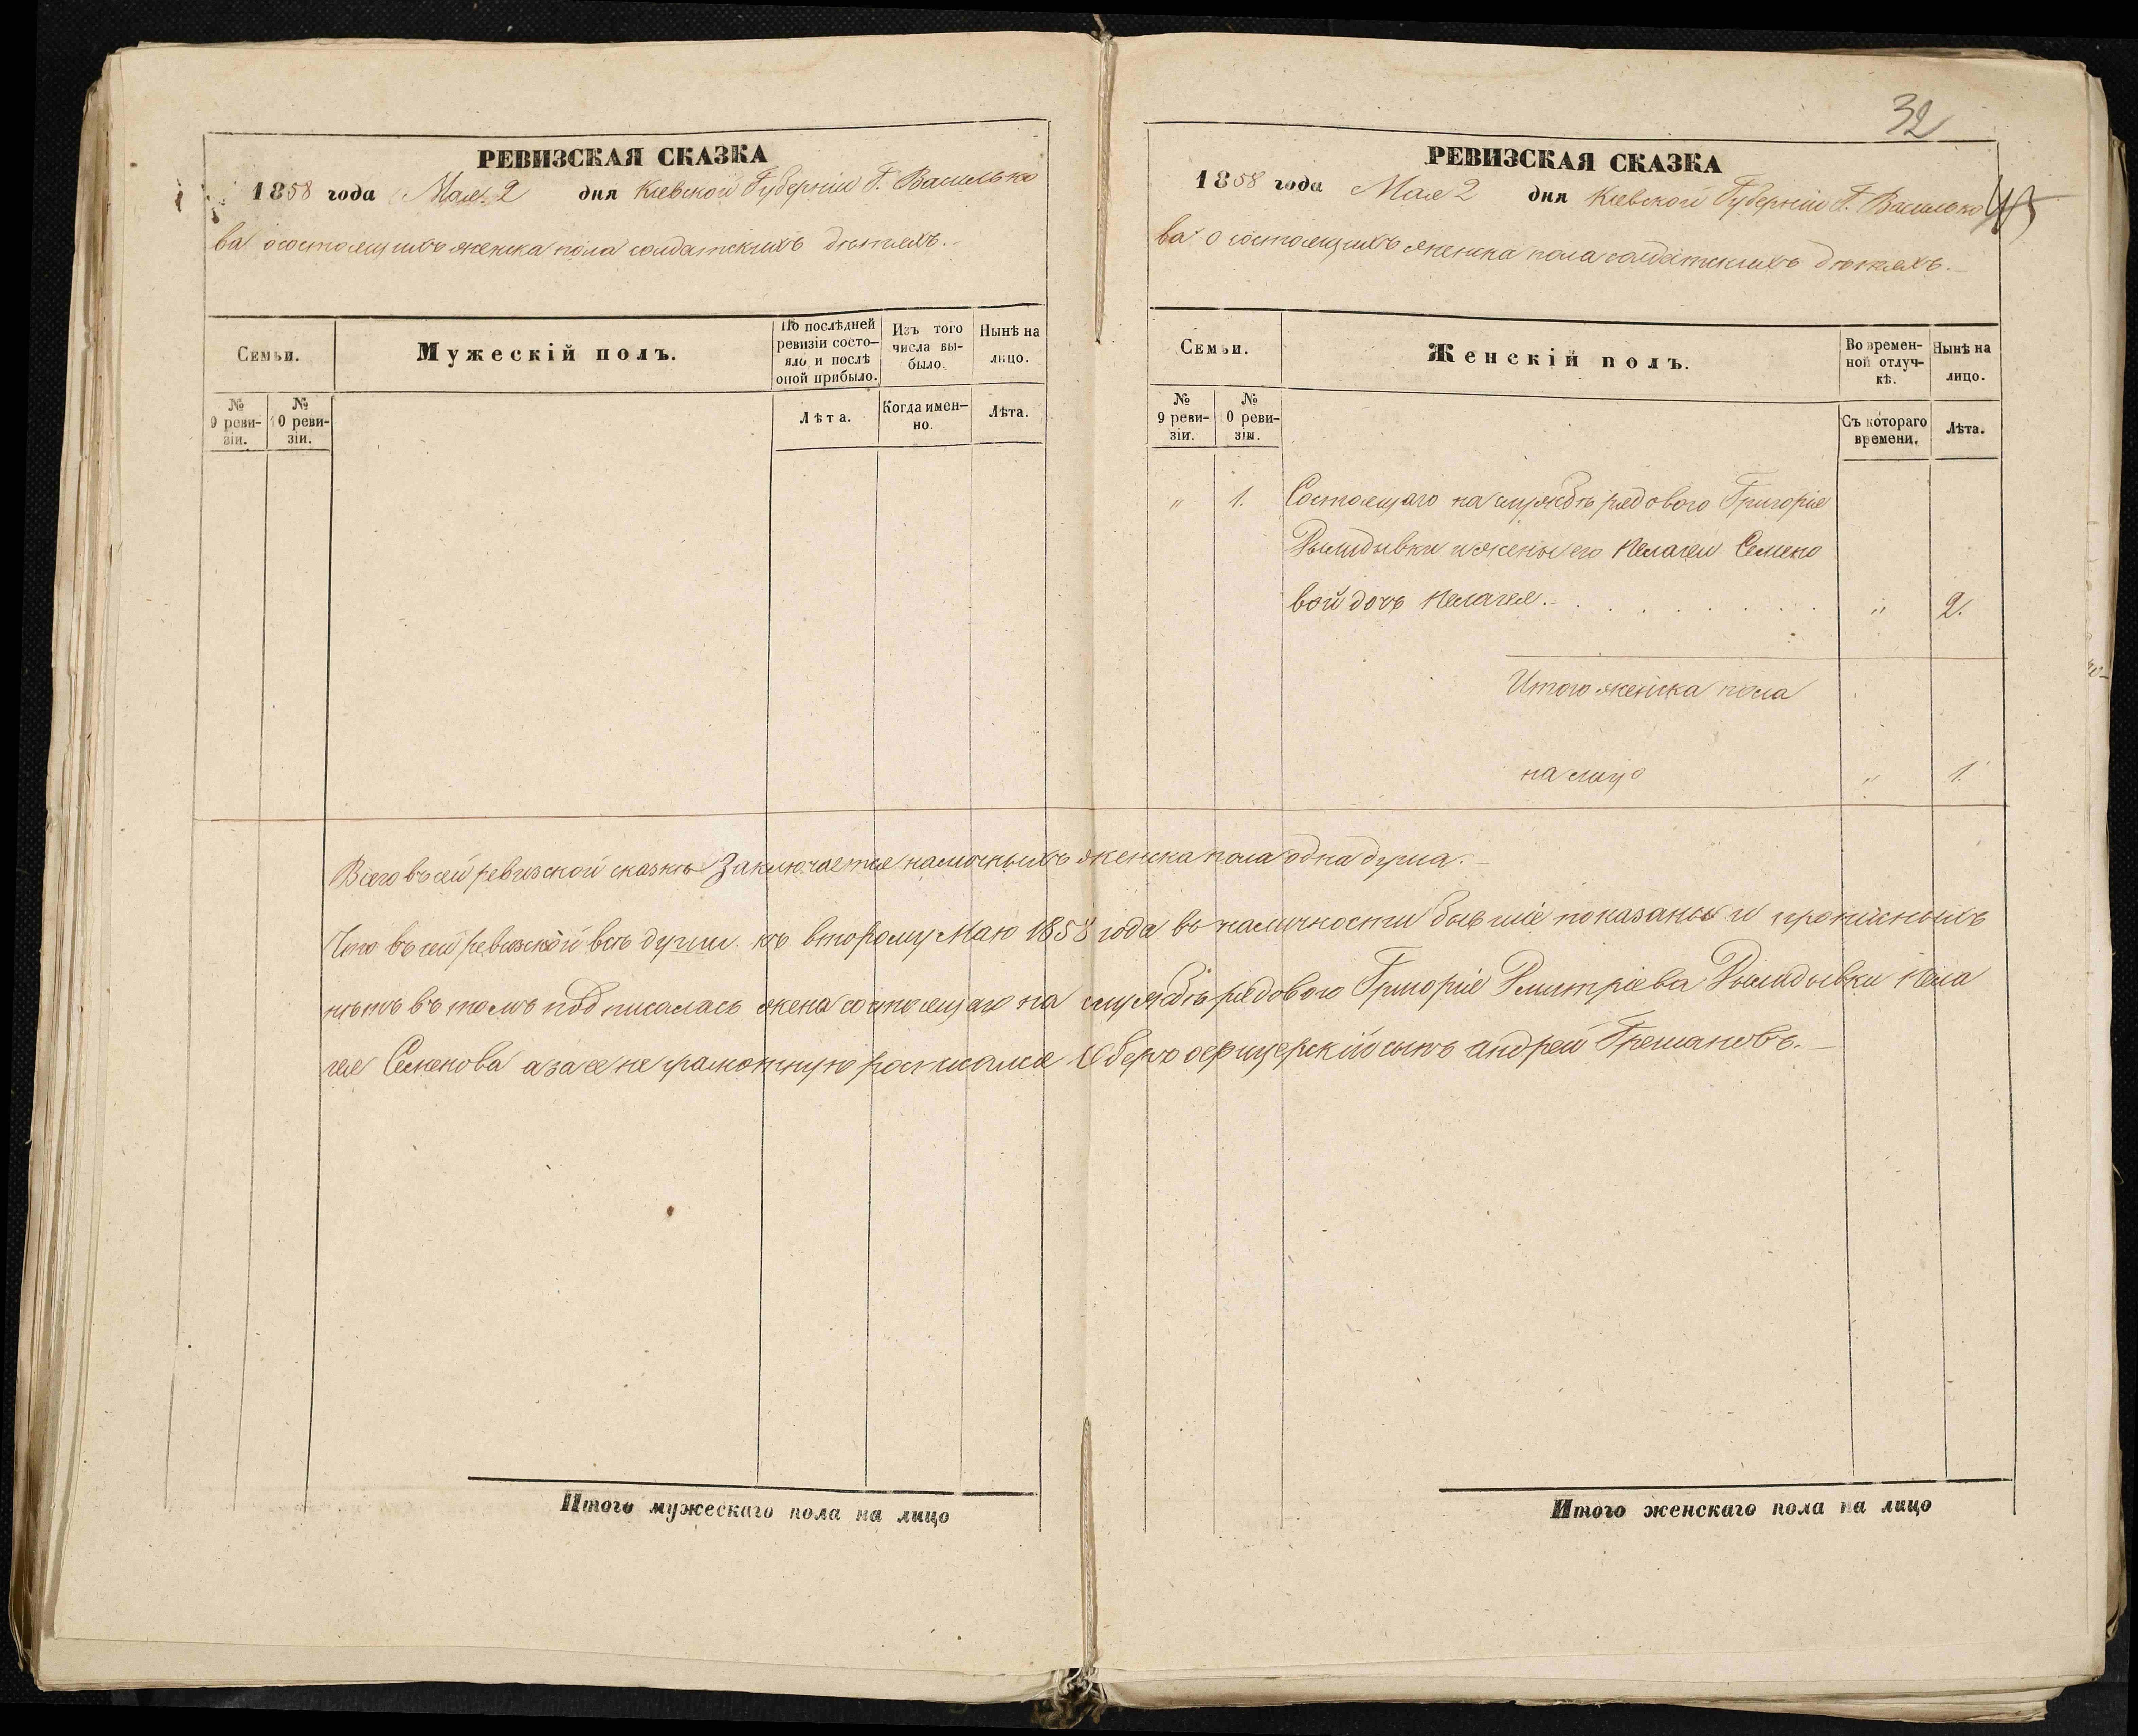 РЕВИЗСКАЯ СКАЗКА
1858 года Мая 2 дня Кіевской Губерніи Г. Василько
ва о состоящихъ женска пола солдатскихъ дѣтяхъ.
Семьи.
Мужескій полъ.
По послѣдней ревизіи состояло и послѣ оной прибыло.
Изъ того числа выбыло.
Нынѣ на лицо.
№ 9 ревизіи.
№ 10 ревизіи.
Лѣта.
Когда именно.
Лѣта.
Итого мужескаго пола на лицо
32
РЕВИЗСКАЯ СКАЗКА
1858 года Мая 2 дня Кіевской Губерніи Г. Василько
ва о состоящихъ женска пола солдатскихъ дѣтяхъ.
Семьи.
Женскій полъ.
Во временной отлучкѣ.
Нынѣ на лицо.
№ 9 ревизіи.
№ 10 ревизіи.
Съ котораго времени.
Лѣта.
" 1. Состоящаго на службѣ рядового Григорія
и жены его Пелагеи Семено
вой дочь Пелагея. " 2.
Итого женска пола
на лицо " 1.
Всего въ сей ревизской сказкѣ заключается наличныхъ женска пола одна душа.
Что въ сей ревизской всѣ души къ второму Маю 1858 года въ наличности бывшіе показаны и прописныхъ
нѣтъ въ томъ подписалась жена состоящаго на службѣ рядового Григорія Дмитріева Пела
гея Семенова а за ее не грамотную росписался Оберъ офицерскій сынъ андрей
Итого женскаго пола на лицо